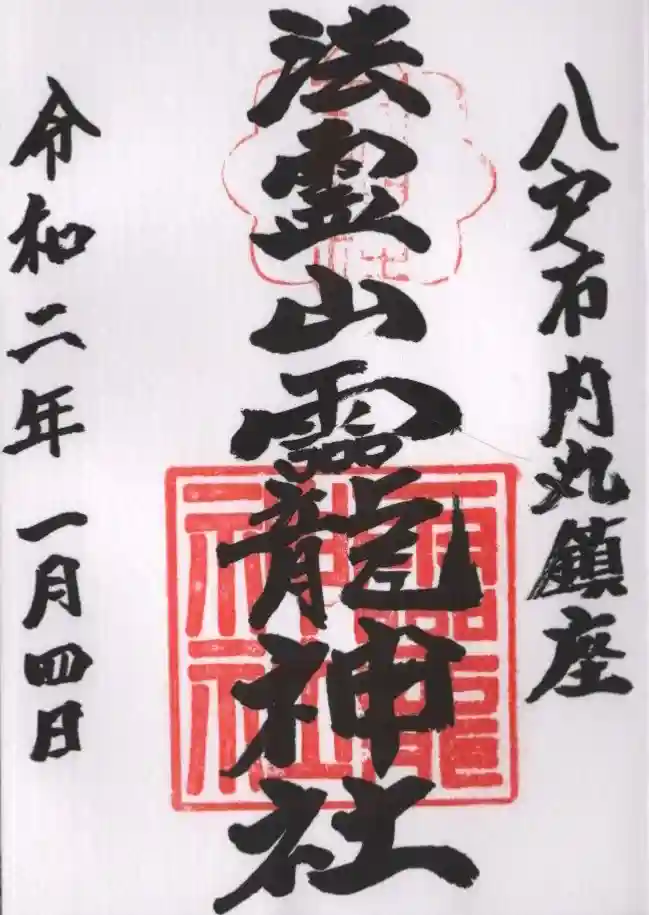 八戸市内丸鎮座
法霊山龗神社
龗神社
令和二年 一月四日